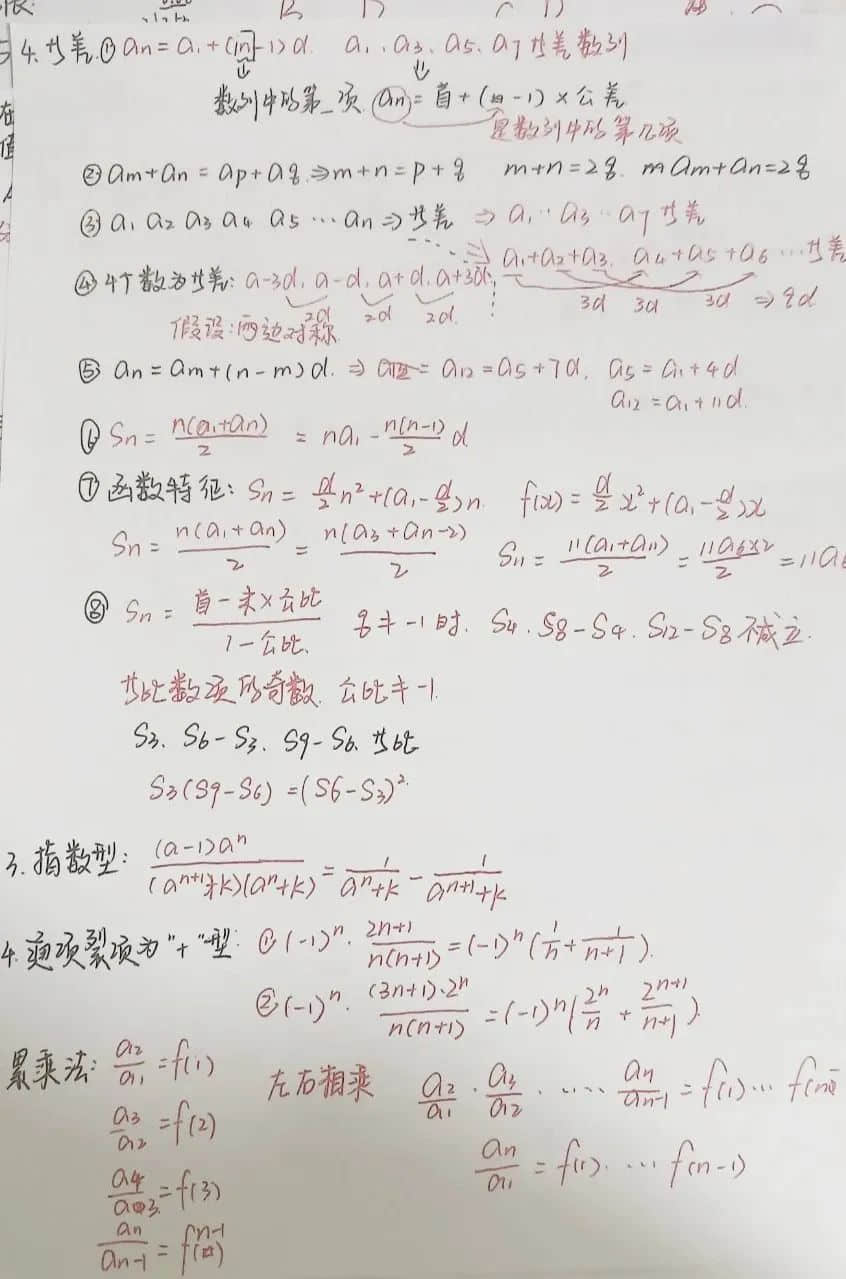 4. 廿差. ① an = a1 + (n-1)d. a1. a3. a5. a7 廿差数列
数列中的第_项 an = 首 + (n-1) × 公差
是数列中的第几项
② am+an = ap+aq ⇒ m+n = p+q m+n=2q. am+an=2q
③ a1 a2 a3 a4 a5 ⋯ an ⇒ 廿差 ⇒ a1 ‥ a3 ‥ a7 廿差
⇒ a1+a2+a3. a4+a5+a6 ⋯ 廿差
④ 4个数为廿差: a-3d. a-d. a+d. a+3d.
2d 2d 2d. 3d 3d 3d ⇒ 9d
假设: 两边对称.
⑤ an = am+(n-m)d. ⇒ a12 = a5+7d. a5 = a1+4d
a12 = a1+11d.
⑥ Sn = n(a1+an)/2 = na1 - n(n-1)/2 d
⑦ 函数特征: Sn = d/2 n² + (a1 - d/2)n. f(x) = d/2 x² + (a1 - d/2)x
Sn = n(a1+an)/2 = n(a3+an-2)/2 S11 = 11(a1+a11)/2 = 11a6×2/2 = 11a6
⑧ Sn = 首-末×公比/1-公比. q≠-1时. S4. S8-S4. S12-S8 不成立.
廿比数项的奇数. 公比≠-1.
S3. S6-S3. S9-S6. 廿比
S3(S9-S6) = (S6-S3)².
3. 指数型: (a-1)aⁿ/(aⁿ⁺¹+k)(aⁿ+k) = 1/aⁿ+k - 1/aⁿ⁺¹+k
4. 项裂项为"+"型: ① (-1)ⁿ · 2n+1/n(n+1) = (-1)ⁿ(1/n + 1/n+1).
② (-1)ⁿ · (3n+1)·2ⁿ/n(n+1) = (-1)ⁿ(2ⁿ/n + 2ⁿ⁺¹/n+1).
累乘法: a2/a1 = f(1) 左右相乘 a2/a1 · a3/a2 · ⋯⋯ an/an-1 = f(1)⋯
a3/a2 = f(2)
an/a1 = f(1). ⋯ f(n-1)
a4/a3 = f(3)
an/an-1 = f(n-1)